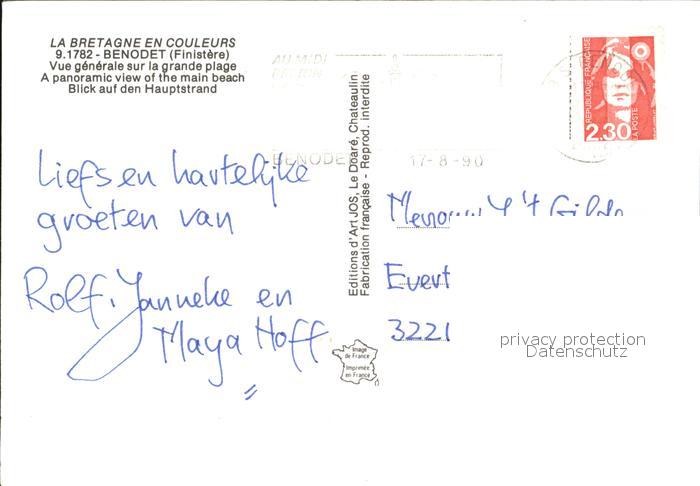 LA BRETAGNE EN COULEURS
9.1782 - BENODET (Finistère)
Vue générale sur la grande plage
A panoramic view of the main beach
Blick auf den Hauptstrand
Liefs en hartelijke
groeten van
Rolf, Janneke en
Maya Hoff
Editions d'Art JOS, Le Doaré, Chateaulin
Fabrication française - Reprod. interdite
Image
de France
Imprimée
en France
AU MIDI
BENODET
17-8-90
REPUBLIQUE FRANÇAISE
2,30
LA POSTE
Evert
3221
privacy protection
Datenschutz